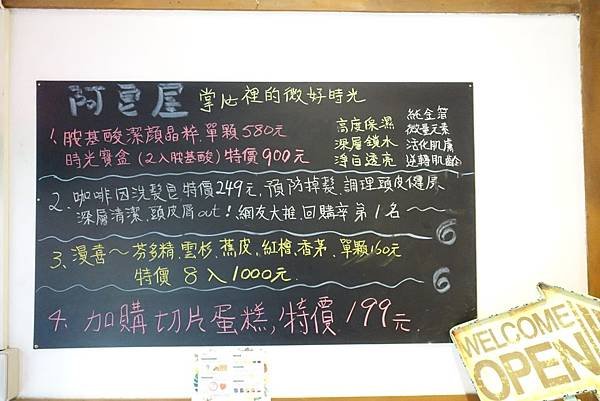 阿豆屋 掌心裡的微好時光
1. 胺基酸潔顏晶粹.單顆580元
時光寶盒(2入胺基酸)特價900元
高度保濕 純金箔
深層鎖水 微量元素
淨白透亮 活化肌膚
逆轉肌齡
2. 咖啡因洗髮皂特價249元,預防掉髮.調理頭皮健康
深層清潔.頭皮屑out!網友大推.回購率第1名~
3. 漫喜~芬多精.雲杉.蕉皮.紅檜.香茅.單顆160元
特價 8入1000元.
66
4. 加購切片蛋糕,特價199元.
WELCOME
OPEN